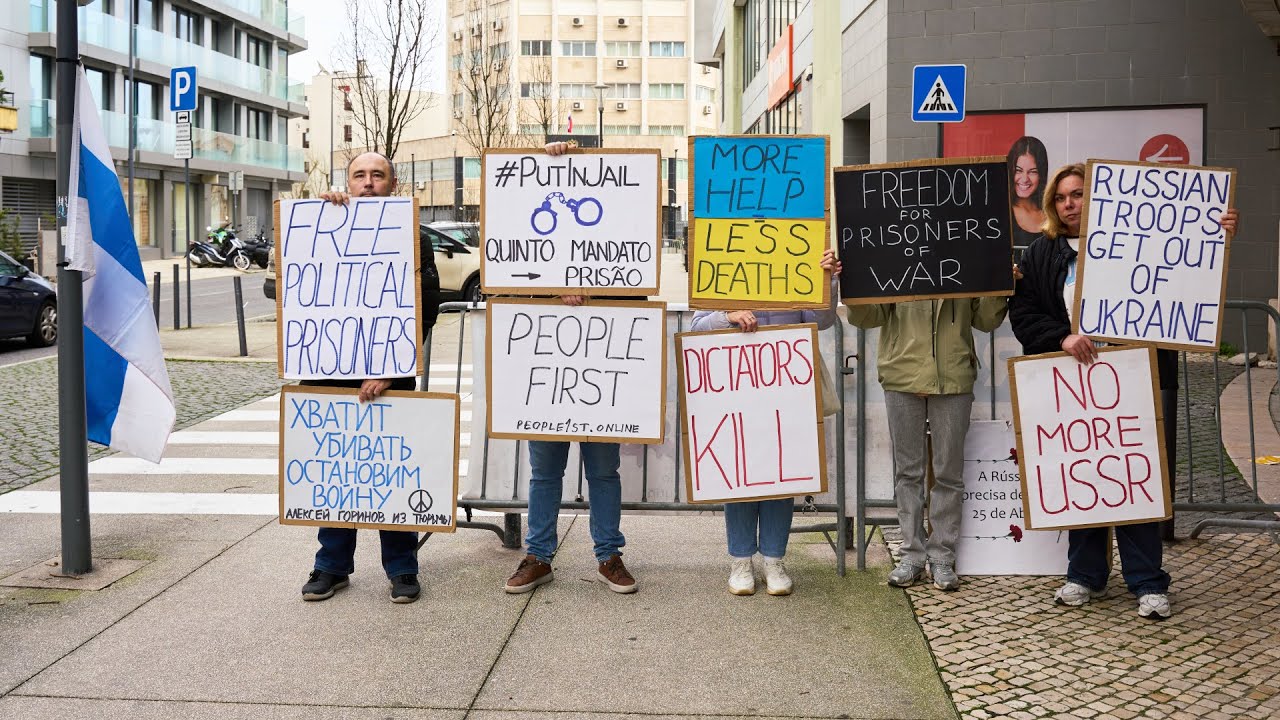 P
FREE
POLITICAL
PRISONERS
ХВАТИТ
УБИВАТЬ
ОСТАНОВИМ
ВОЙНУ
АЛЕКСЕЙ ГОРИНОВ ИЗ ТЮРЬМЫ
#PUTINJAIL
QUINTO MANDATO
→ PRISÃO
PEOPLE
FIRST
PEOPLE1ST.ONLINE
MORE
HELP
LESS
DEATHS
DICTATORS
KILL
FREEDOM
FOR
PRISONERS
OF
WAR
A Rússia
precisa de
25 de Ab
RUSSIAN
TROOPS
GET OUT
OF
UKRAINE
NO
MORE
USSR